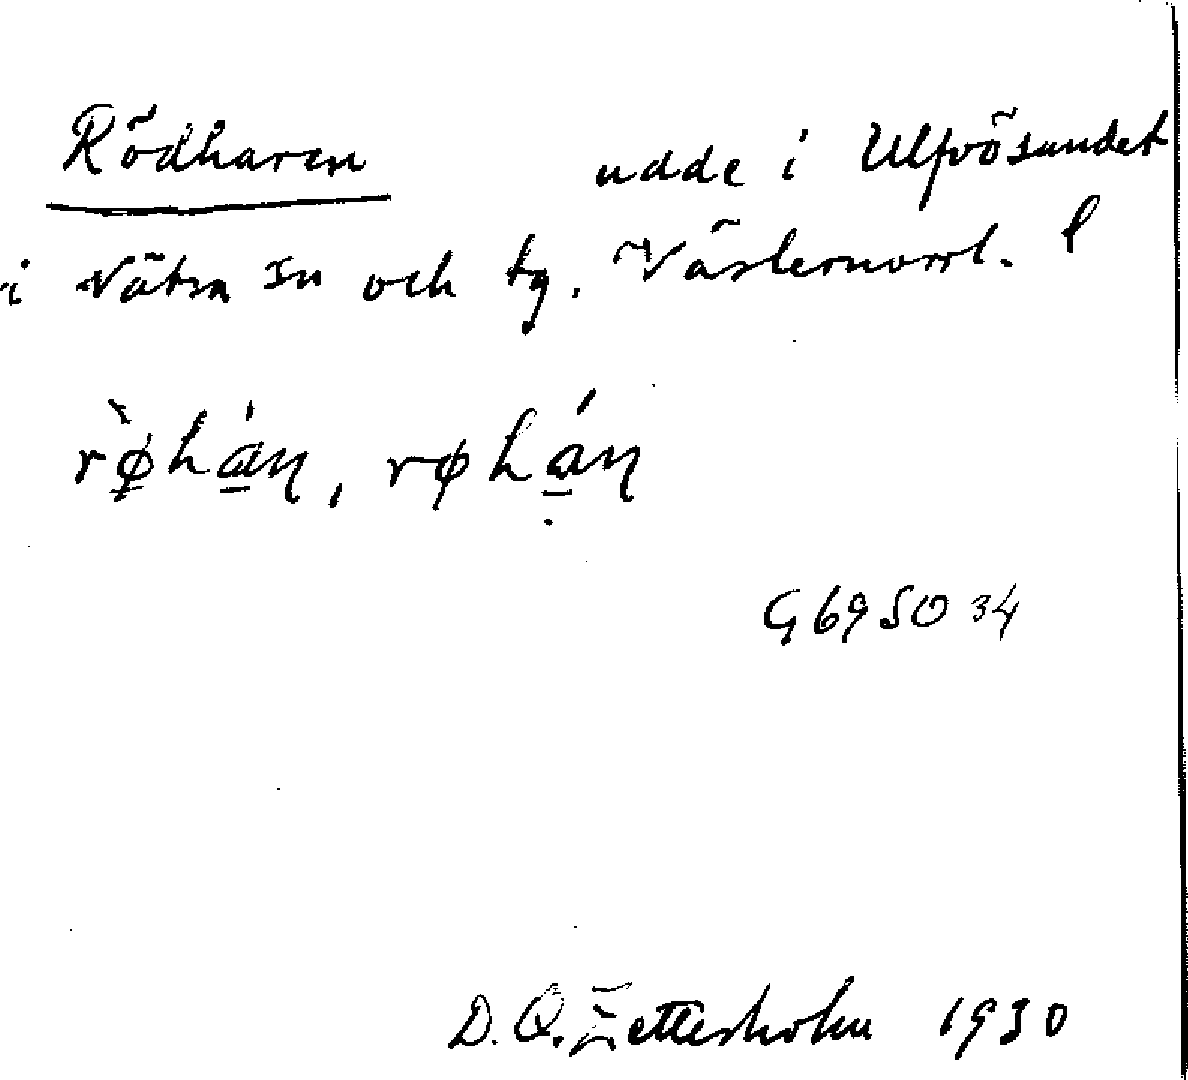 Rödharen udde i Ulfvösundet
i Nätra sn och tg. Västernorrl. l
rø̀hán, røhán
G6950 34
D.O. Zetterholm 1930